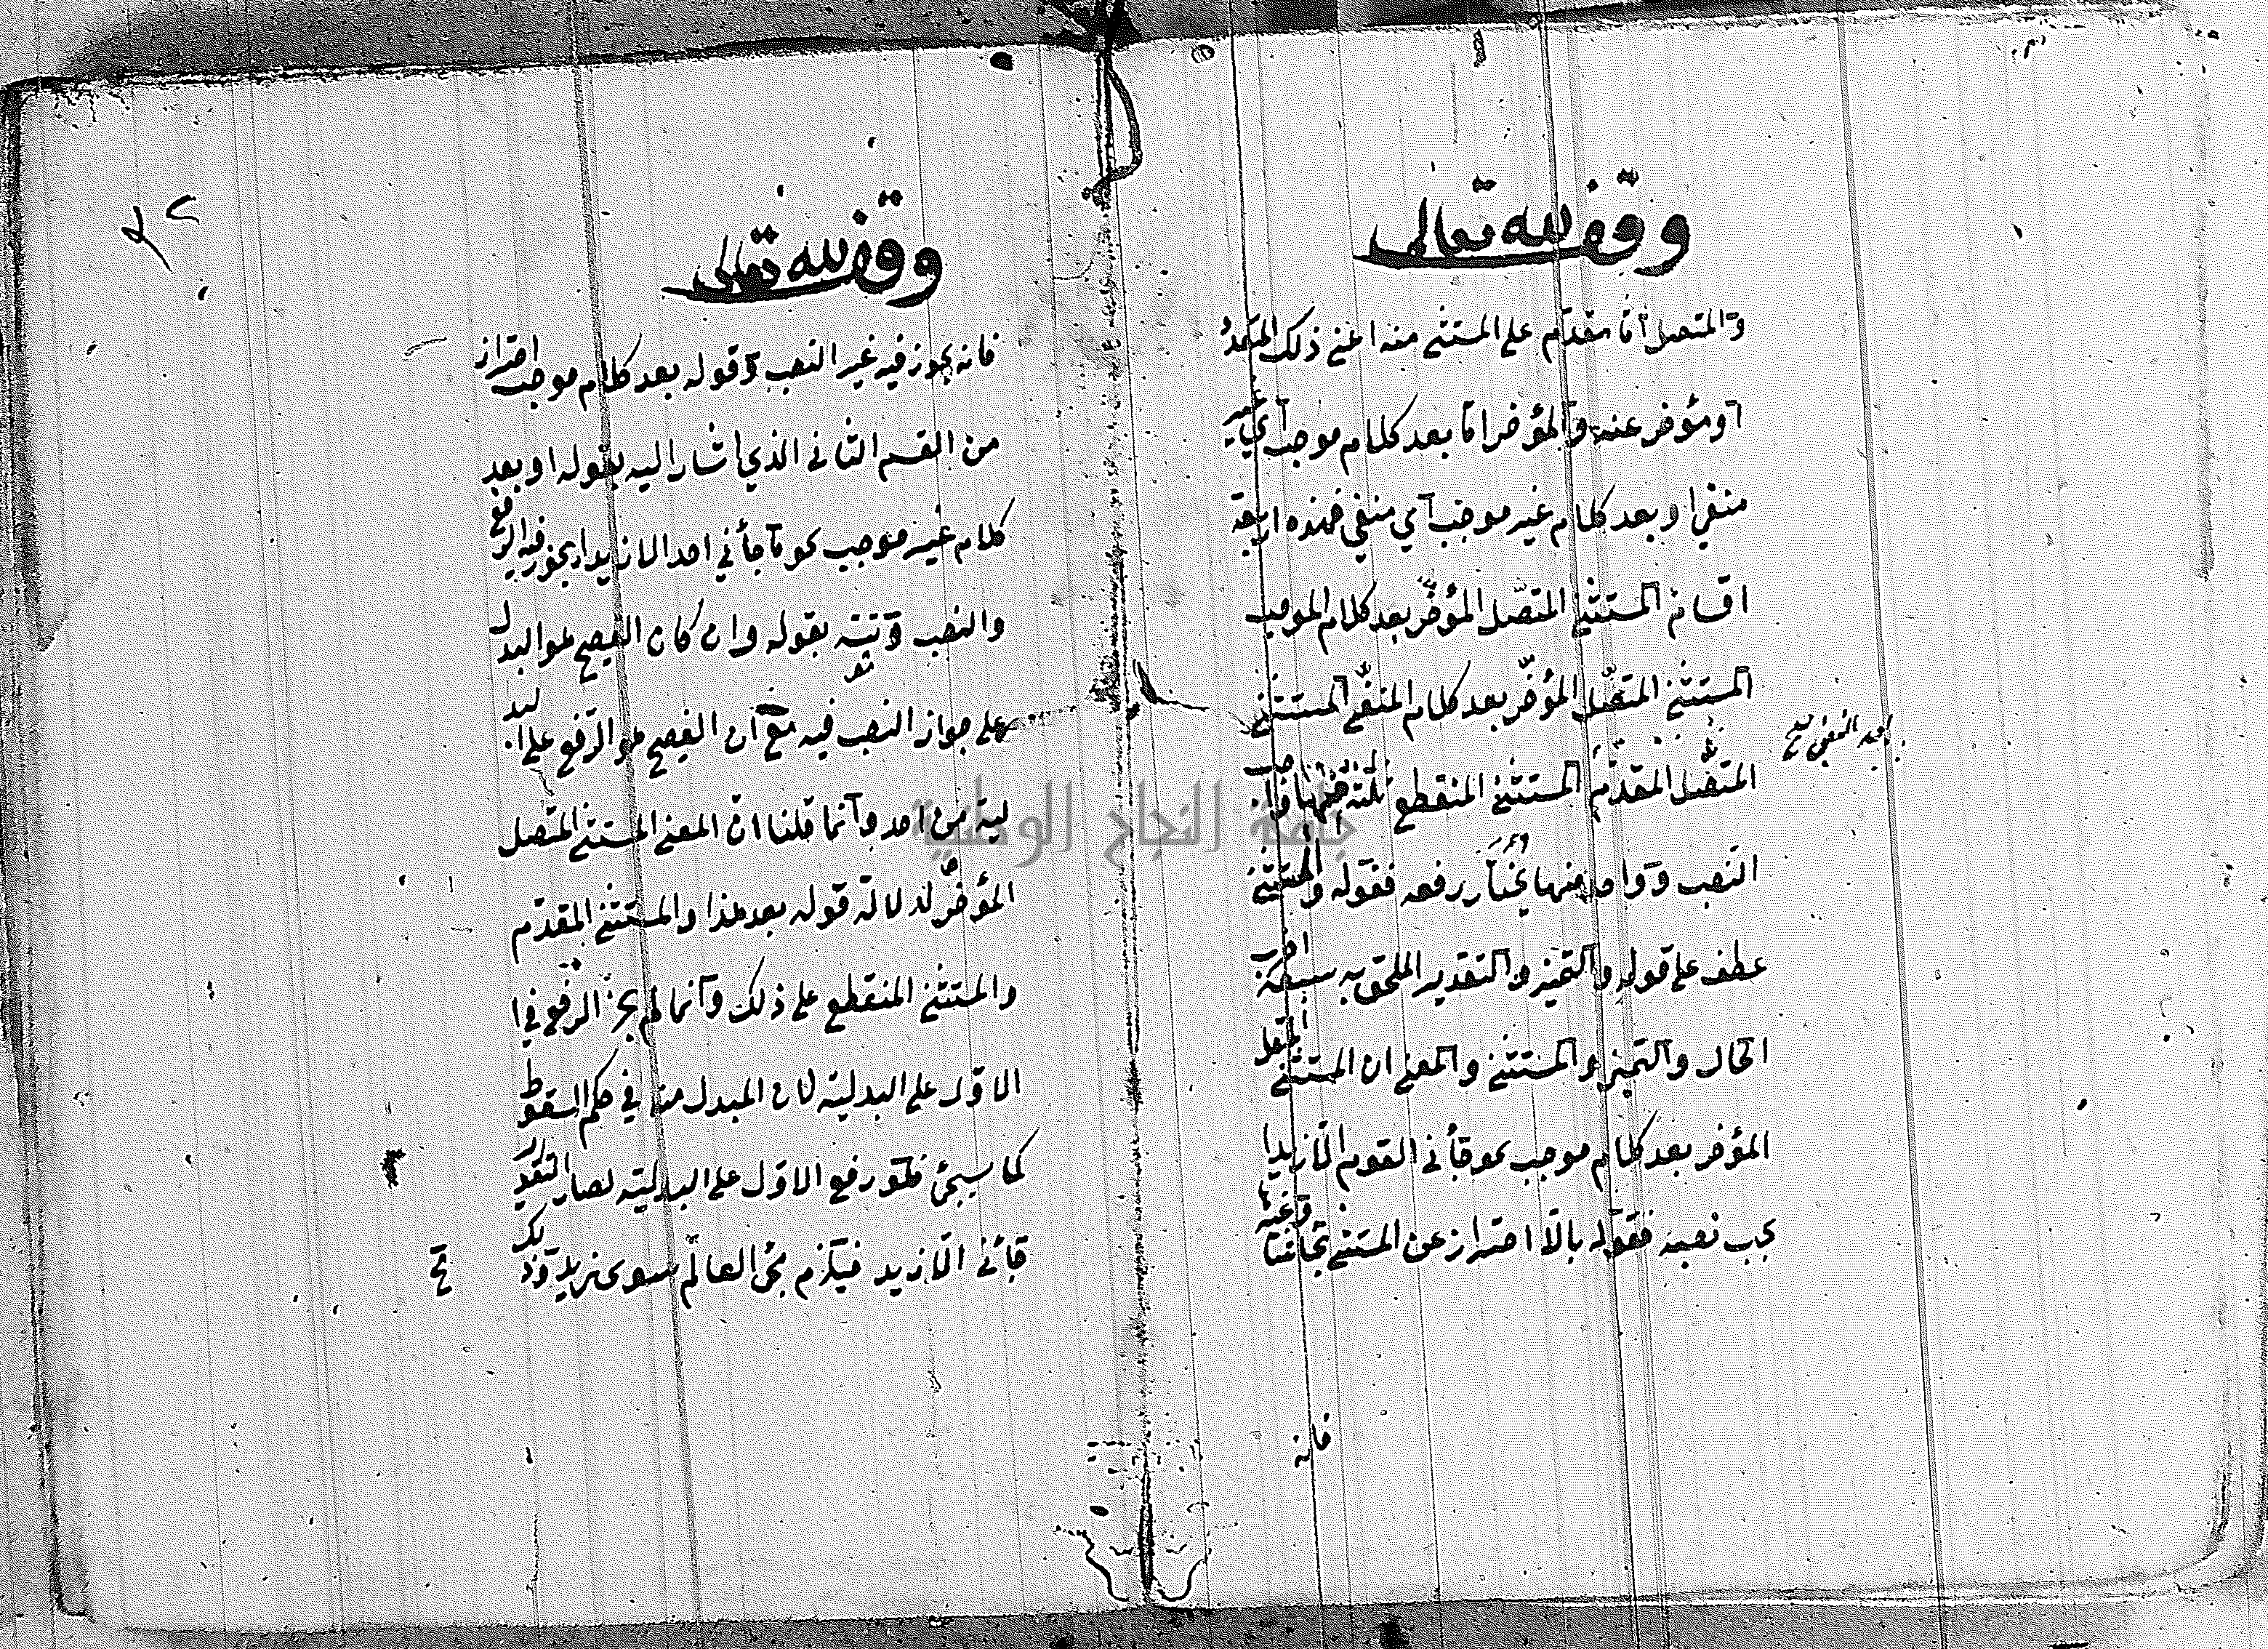 وقف لله تعالى
والمتصل اما مقدم على المستثنى منه اعنى ذلك المتعدد
او مؤخر عنه والمؤخر اما بعد كلام موجب اي غير
منفي او بعد كلام غير موجب اي منفي فهذه اربعة
اقسام المستثنى المتصل المؤخر بعد كلام الموجب
المستثنى المتصل المؤخر بعد كلام المنفي المستثنى
المتصل المقدم المستثنى المنقطع ثلثة منها واجب
النصب وواحد منها يختار رفعه فقوله والمستثنى
عطف على قوله والتميز والتقدير الملحق به سبعة احرف
الحال والتميز والمستثنى والمعنى ان المستثنى المتصل
المؤخر بعد كلام موجب نحو جأنى القوم الا زيدا
يجب نصبه فقوله بالا احتراز عن المستثنى بحاشا وغيره
فانه
وقف لله تعالى
فانه يجوز فيه غير النصب وقوله بعد كلام موجب احتراز
من القسم الثانى الذي اشار اليه بقوله او بعد
كلام غير موجب نحو ما جأني احد الا زيدا يجوز فيه الرفع
والنصب ونبه بقوله وان كان الفصيح هو البدل
على جواز النصب فيه مع ان الفصيح هو الرفع على البد
لية من احد وانما قلنا ان المعنى المستثنى المتصل
المؤخر لدلالة قوله بعد هذا والمستثنى المقدم
والمستثنى المنقطع على ذلك وانما لم يجز الرفع في ا
الاول على البدلية لان المبدل منه في حكم السقوط
كما سيجئ فلو رفع الاول على البدلية لصار التقدير
جأنى الا زيد فيلزم مجئ العالم سوى زيد وذلك
مح
جامعة النجاح الوطنية